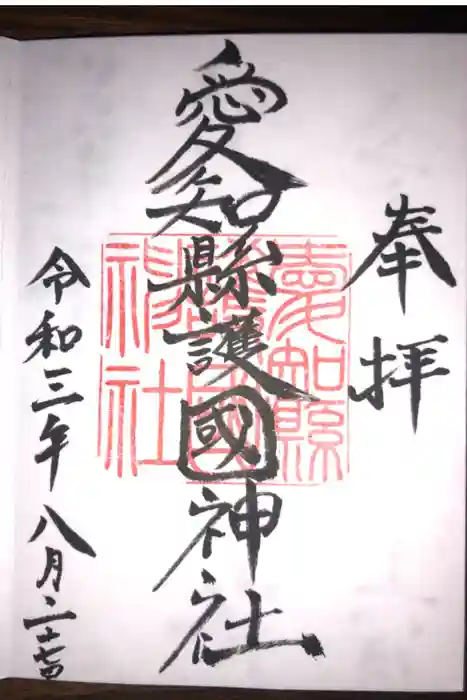 奉拝
愛知縣護國神社
愛知縣
護國
神社
令和三年八月二十七日